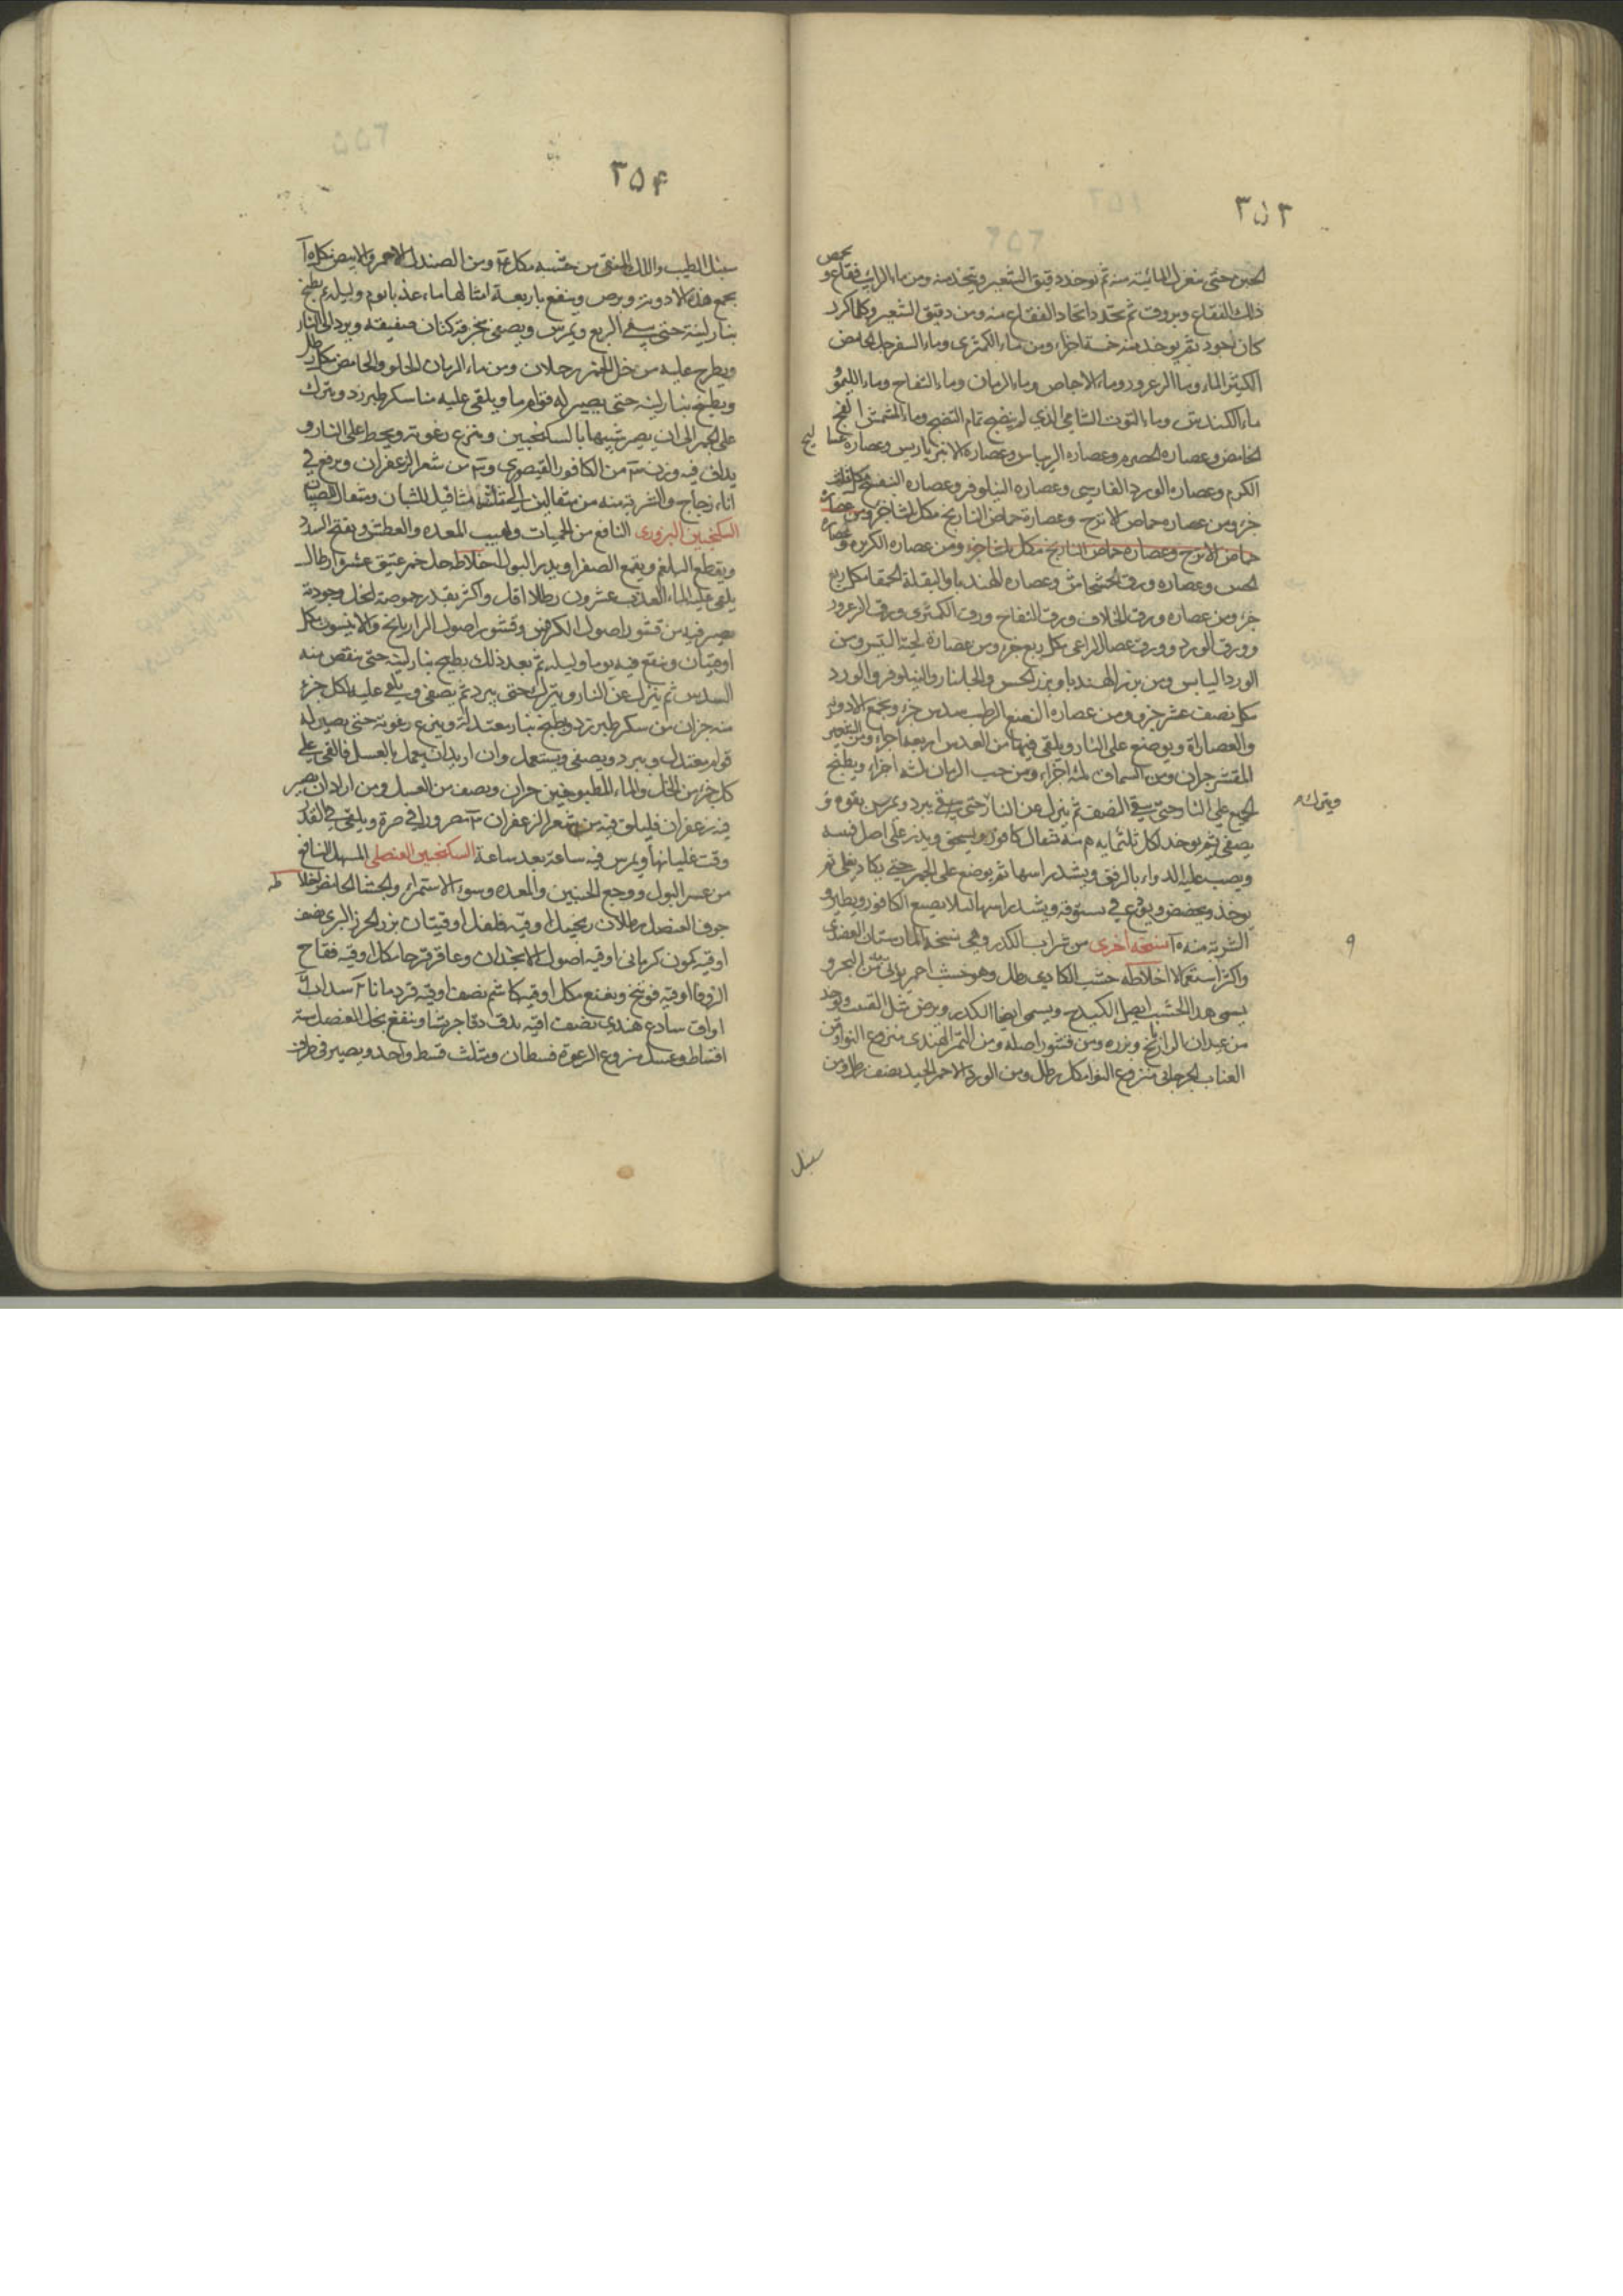 ٣٥٣
الجبن حتى ينعزل المائية منه ثم يوخد دقيق الشعير ويتخذ منه ومن ماء الرايب فقاع و
ذلك الفقاع ويروق ثم تجدد اتخاد الفقاع منه ومن دقيق الشعير وكلما كرر
كان اجود ثم يوخد منه خمسة اجزاء ومن ماء الكمثرى وماء السفرجل الحامض
الكثير الماء وماء الزعرور وماء الاجاص وماء الرمان وماء التفاح وماء الليمو
ماء الكندس وماء التوت الشامي الذي لم ينضج تمام النضج وماء المشمش الفج
الحامض وعصاره الحصرم وعصاره الريباس وعصارة الانبرباريس وعصاره عسا ليج
الكرم وعصاره الورد الفارسي وعصاره النيلوفر وعصاره البنفسج
جزء ومن عصاره حماض الاترج وعصارة حماض النارنج مكل ثلثا جزء
حماض الاترج وعصاره حماض النارنج مكل ثلثا جزء ومن عصاره الكزبره و
الخس وعصاره ورق الخشخاش وعصاره الهندبا والبقلة الحمقا مكل ربع
جزء ومن عصاره ورق الخلاف ورق التفاح وورق الكمثرى ورق الزعرور
وورق الورد وورق عصا الراعي مكل ربع جزء ومن عصارة لحية التيس ومن
الورد اليابس ومن بزر الهندبا وبزر الخس والجلنار والنيلوفر والورد
مكل نصف عشر جزء ومن عصاره النعنع الرطب سدس جزء ويجمع الادويه
والعصارات ويوضع على النار ويلقى فيها من العدس اربعة اجزاء ومن الشعير
المقشر جزان ومن السماق ثلثه اجزاء ومن حب الرمان ثلثه اجزاء ويطبخ
الجميع على النار حتى يبقى النصف ثم ينزل عن النار حتى يبرد ويمرس بقوه و
ويتركه
يصفى ثم يوخد لكل ثلثمايه م منه مثقال كافور ويسحق ويدر على اصل
ويصب عليه الدواء بالرفق ويشد راسها ثم يوضع على الجمر حتى يكاد يغلى ثم
يوخد ويخضخض ويوقع في بستوقه ويشد راسها لئلا يضيع الكافور ويطير و
الشربة منه آ نسخه اخرى من شراب الكدر وهي نسخه المارستان العضدى
واكثر استعمالا اخلاطه خشب الكادي رطل وهو خشب احمر يوتى به من البحر و
يسمى هذا الخشب ويسمى ايضا الكدر ويرض مثل القت ويوخد
من عيدان الرازيانج وبزره ومن قشور اصله ومن التمر الهندى منزوع النوا ومن
العناب الجرجاني منزوع النوا مكل رطل ومن الورد الاحمر الجيد نصف رطل ومن
سنبل
٣٥۴
سنبل الطيب واللك المنقى من خشبه مكل ومن الصندل الاحمر والابيض مكل
يجمع هذه الادويه ويرض وينقع باربعة امثالها ماء عذبا يوم وليله ثم يطبخ
بنار لينة حتى يبقى الربع ويمرس ويصفى بخرقة كتان صفيقه ويرد الى النار
ويطرح عليه من خل الخمر رطلان ومن ماء الرمان الحلو والحامض مكل رطل
ويطبخ بنار لينه حتى يصير له قوام ما ويلقى عليه منا سكر طبرزد ويترك
على الجمر الى ان يصير شبيها بالسكنجبين وينزع رغوته ويحط على النار و
يداف فيه وزن من الكافور القيصورى و من شعر الزعفران ويرفع في
اناء زجاج والشربة منه من مثقالين الى ثلثة مثاقيل للشبان ومثقال للصبيان
السكنجبين البزورى النافع من الحميات ولهيب المعده والعطش ويفتح السدد
ويقطع البلغم ويقمع الصفرا ويدر البول اخلاطه خل خمر عتيق عشره ارطال
يلقى عليه الماء العذب عشرون رطلا اقل واكثر بقدر حموضة الخل وجودته
يصير فيه من قشور اصول الكرفس وقشور اصول الرازيانج والانيسون مكل
اوقيتان وينقع فيه يوما وليله ثم بعد ذلك يطبخ بنار لينه حتى ينقص منه
السدس ثم ينزل عن النار ويترك حتى يبرد ثم يصفى ويلقى عليه لكل جزء
منه جزان من سكر طبرزد ويطبخ بنار معتدلة وينزع رغوته حتى يصير له
قوام معتدل ويبرد ويصفى ويستعمل وان اريد ان يعمل بالعسل فالقى على
كل جزء من الخل والماء المطبوخين جزان ونصف من العسل ومن اراد ان يصير
فيه زعفران فليلق فيه من شعر الزعفران مصرورا في صرة ويلقى في القدر
وقت غليانها ويمرس فيه ساعة بعد ساعة السكنجبين العنصلى المسهل النافع
من عسر البول ووجع الجنبين والمعده وسوء الاستمرار والجشا الحامض اخلا طه
جوف العنصل رطلان زنجبيل اوقيه فلفل اوقيتان بزر الجزر البرى نصف
اوقيه كمون كرماني اوقيه اصول الانجدان وعاقرقرحا مكل اوقيه فقاح
الزوفا اوقيه فوتنج ونعنع مكل اوقيه كاشم نصف اوقيه قردمانا سداب
اواق سادج هندي نصف اوقيه يدق دقا جريشا وينقع بخل العنصل ستة
اقساط وعسل منزوع الرغوة قسطان ومثلث قسط واحد ويصير في ظرف